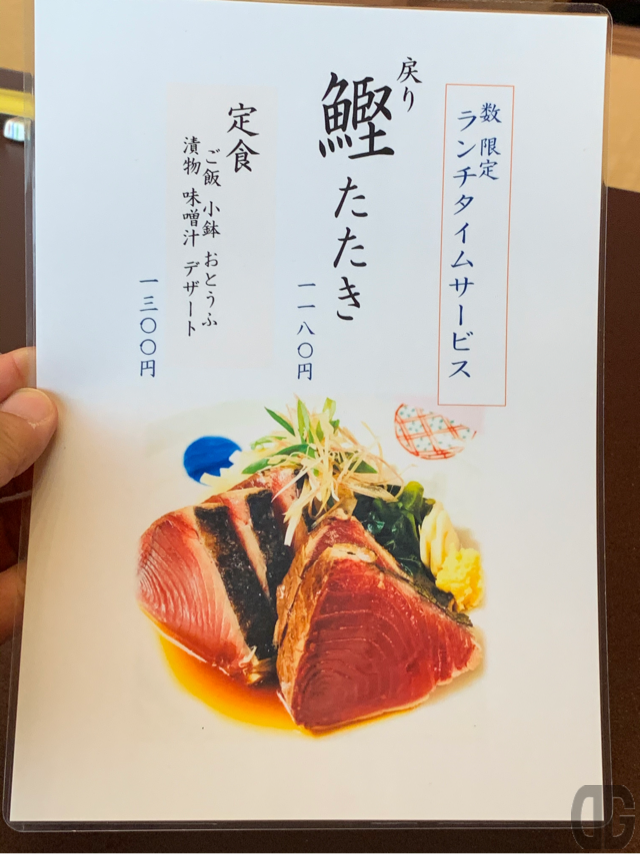 数 限定
ランチタイムサービス
戻り
鰹たたき
一一八〇円
定食
ご飯 小鉢 おとうふ
漬物 味噌汁 デザート
一三〇〇円
DG